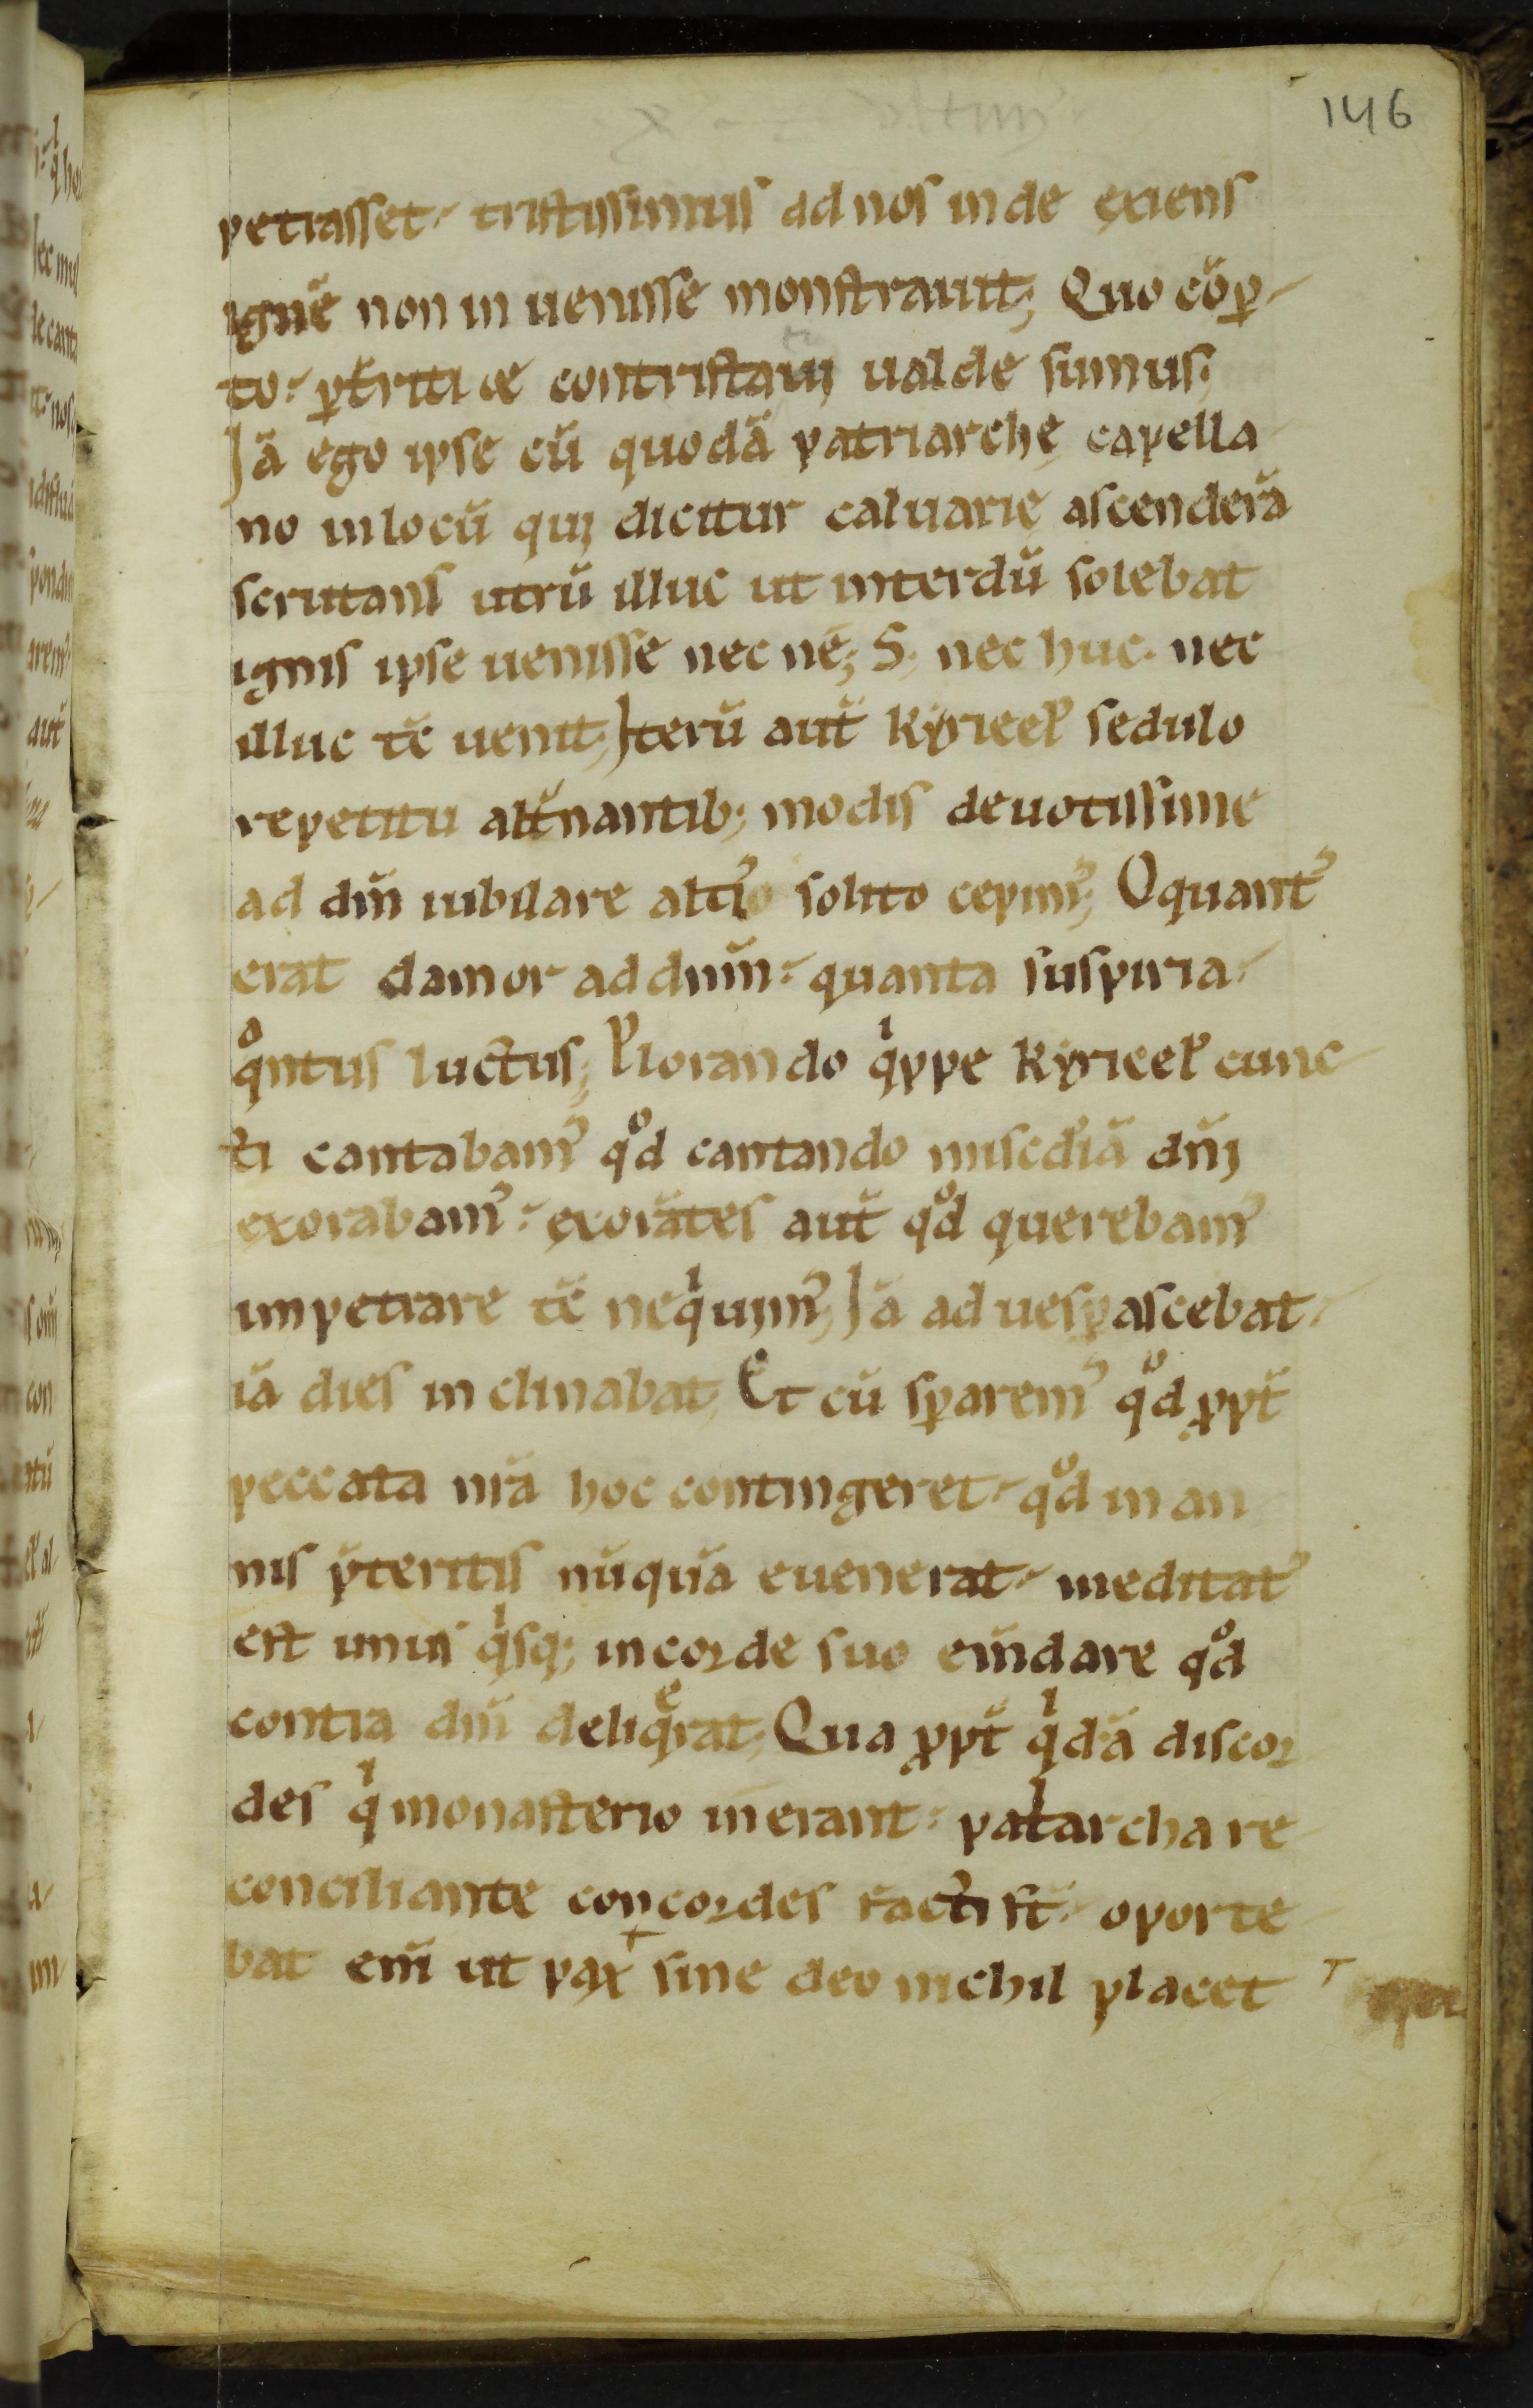 146
petrasset. tristissimus ad nos inde exiens
ignē non inuenisse monstrauit; Quo cōp̱
to. p̱t̄riti & contristati ualde sumus;
Iā ego ipse cū quodā patriarchę capella
no in locū qui dicitur caluarię ascenderā
scrutans utrū illuc ut interdū solebat
ignis ipse uenisse nec nē; S; nec huc. nec
illuc tc̄ uenit; Iterū aut̄ Kyrieeľ sedulo
repetitu alt̄nantib; modis deuotissime
ad dm̄ iubilare alti᾽ solito cepim᾽; O quant᾽
erat clamor ad dnm̄. quanta suspiria.
qͦntus luctus; Plorando qⁱppe Kyrieeľ cunc
ti cantabam᾽ qͦd cantando misc̄diā dn̄i
exorabam᾽. exorātes aut̄ qͦd querebam᾽
impetrare tc̄ neqⁱuim᾽; Iā aduesp̱ascebat.
iā dies inclinabat; Et cū sp̱arem᾽ qͦd ꝓpt̄
peccata nr̄a hoc contingeret. qͦd in an
nis p̄teritis nūquā euenerat. meditat᾽
est unus qⁱsq; in corde suo em̄dare qͦd
contra dm̄ deliqͤrat; Qua ꝓpt̄ qⁱdā discor
des qⁱ monasterio inerant. patⁱarcha re
conciliante concordes facti st̄. oporte
bat em̄ ut pax sine deo nichil placet